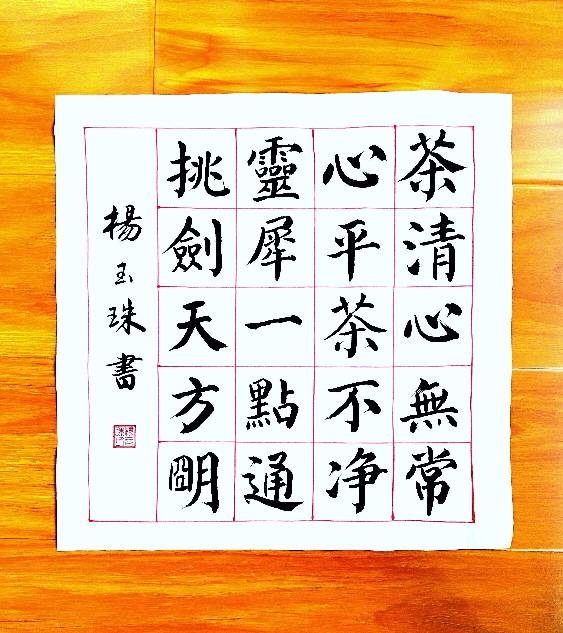 茶清心無常
心平茶不净
靈犀一點通
挑劍天方朙
楊玉珠書